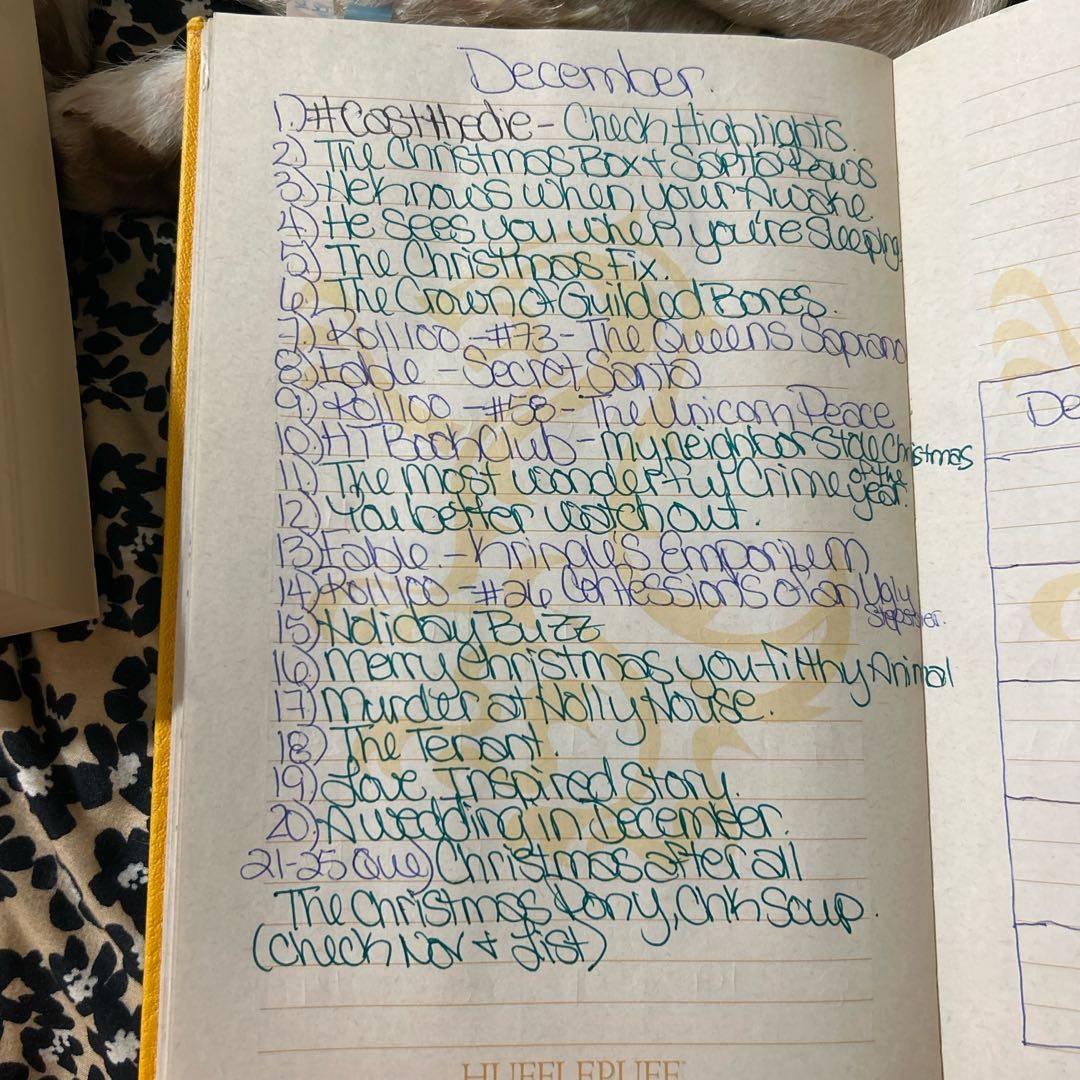 December.
1.) #Castthedie - Check Highlights.
2.) The Christmas Box + Santa Paws
3.) He knows when your Awake
4.) He Sees you when you're sleeping
5.) The Christmas Fix.
6.) The Crown of Guilded Bones.
7.) Roll 100 - #73 - The Queens Soprano
8.) Fable - Secret Santa
9.) Roll 100 - #58 - The Unicorn Peace
10.) HT Book Club - My neighbor Stole Christmas
11.) The most wonderful Crime of the year.
12.) You better watch out.
13.) Fable - Kringle's Emporium
14.) Roll 100 - #26 Confessions of an Ugly Stepsister.
15.) Holiday Buzz
16.) Merry Christmas you filthy Animal
17.) Murder at Holly House.
18.) The Tenant.
19.) Love Inspired Story.
20.) A wedding in December.
21-25 Christmas after all
The Christmas Pony, Chkn Soup.
(Check Nov + List)
HUFFLEPUFF
De